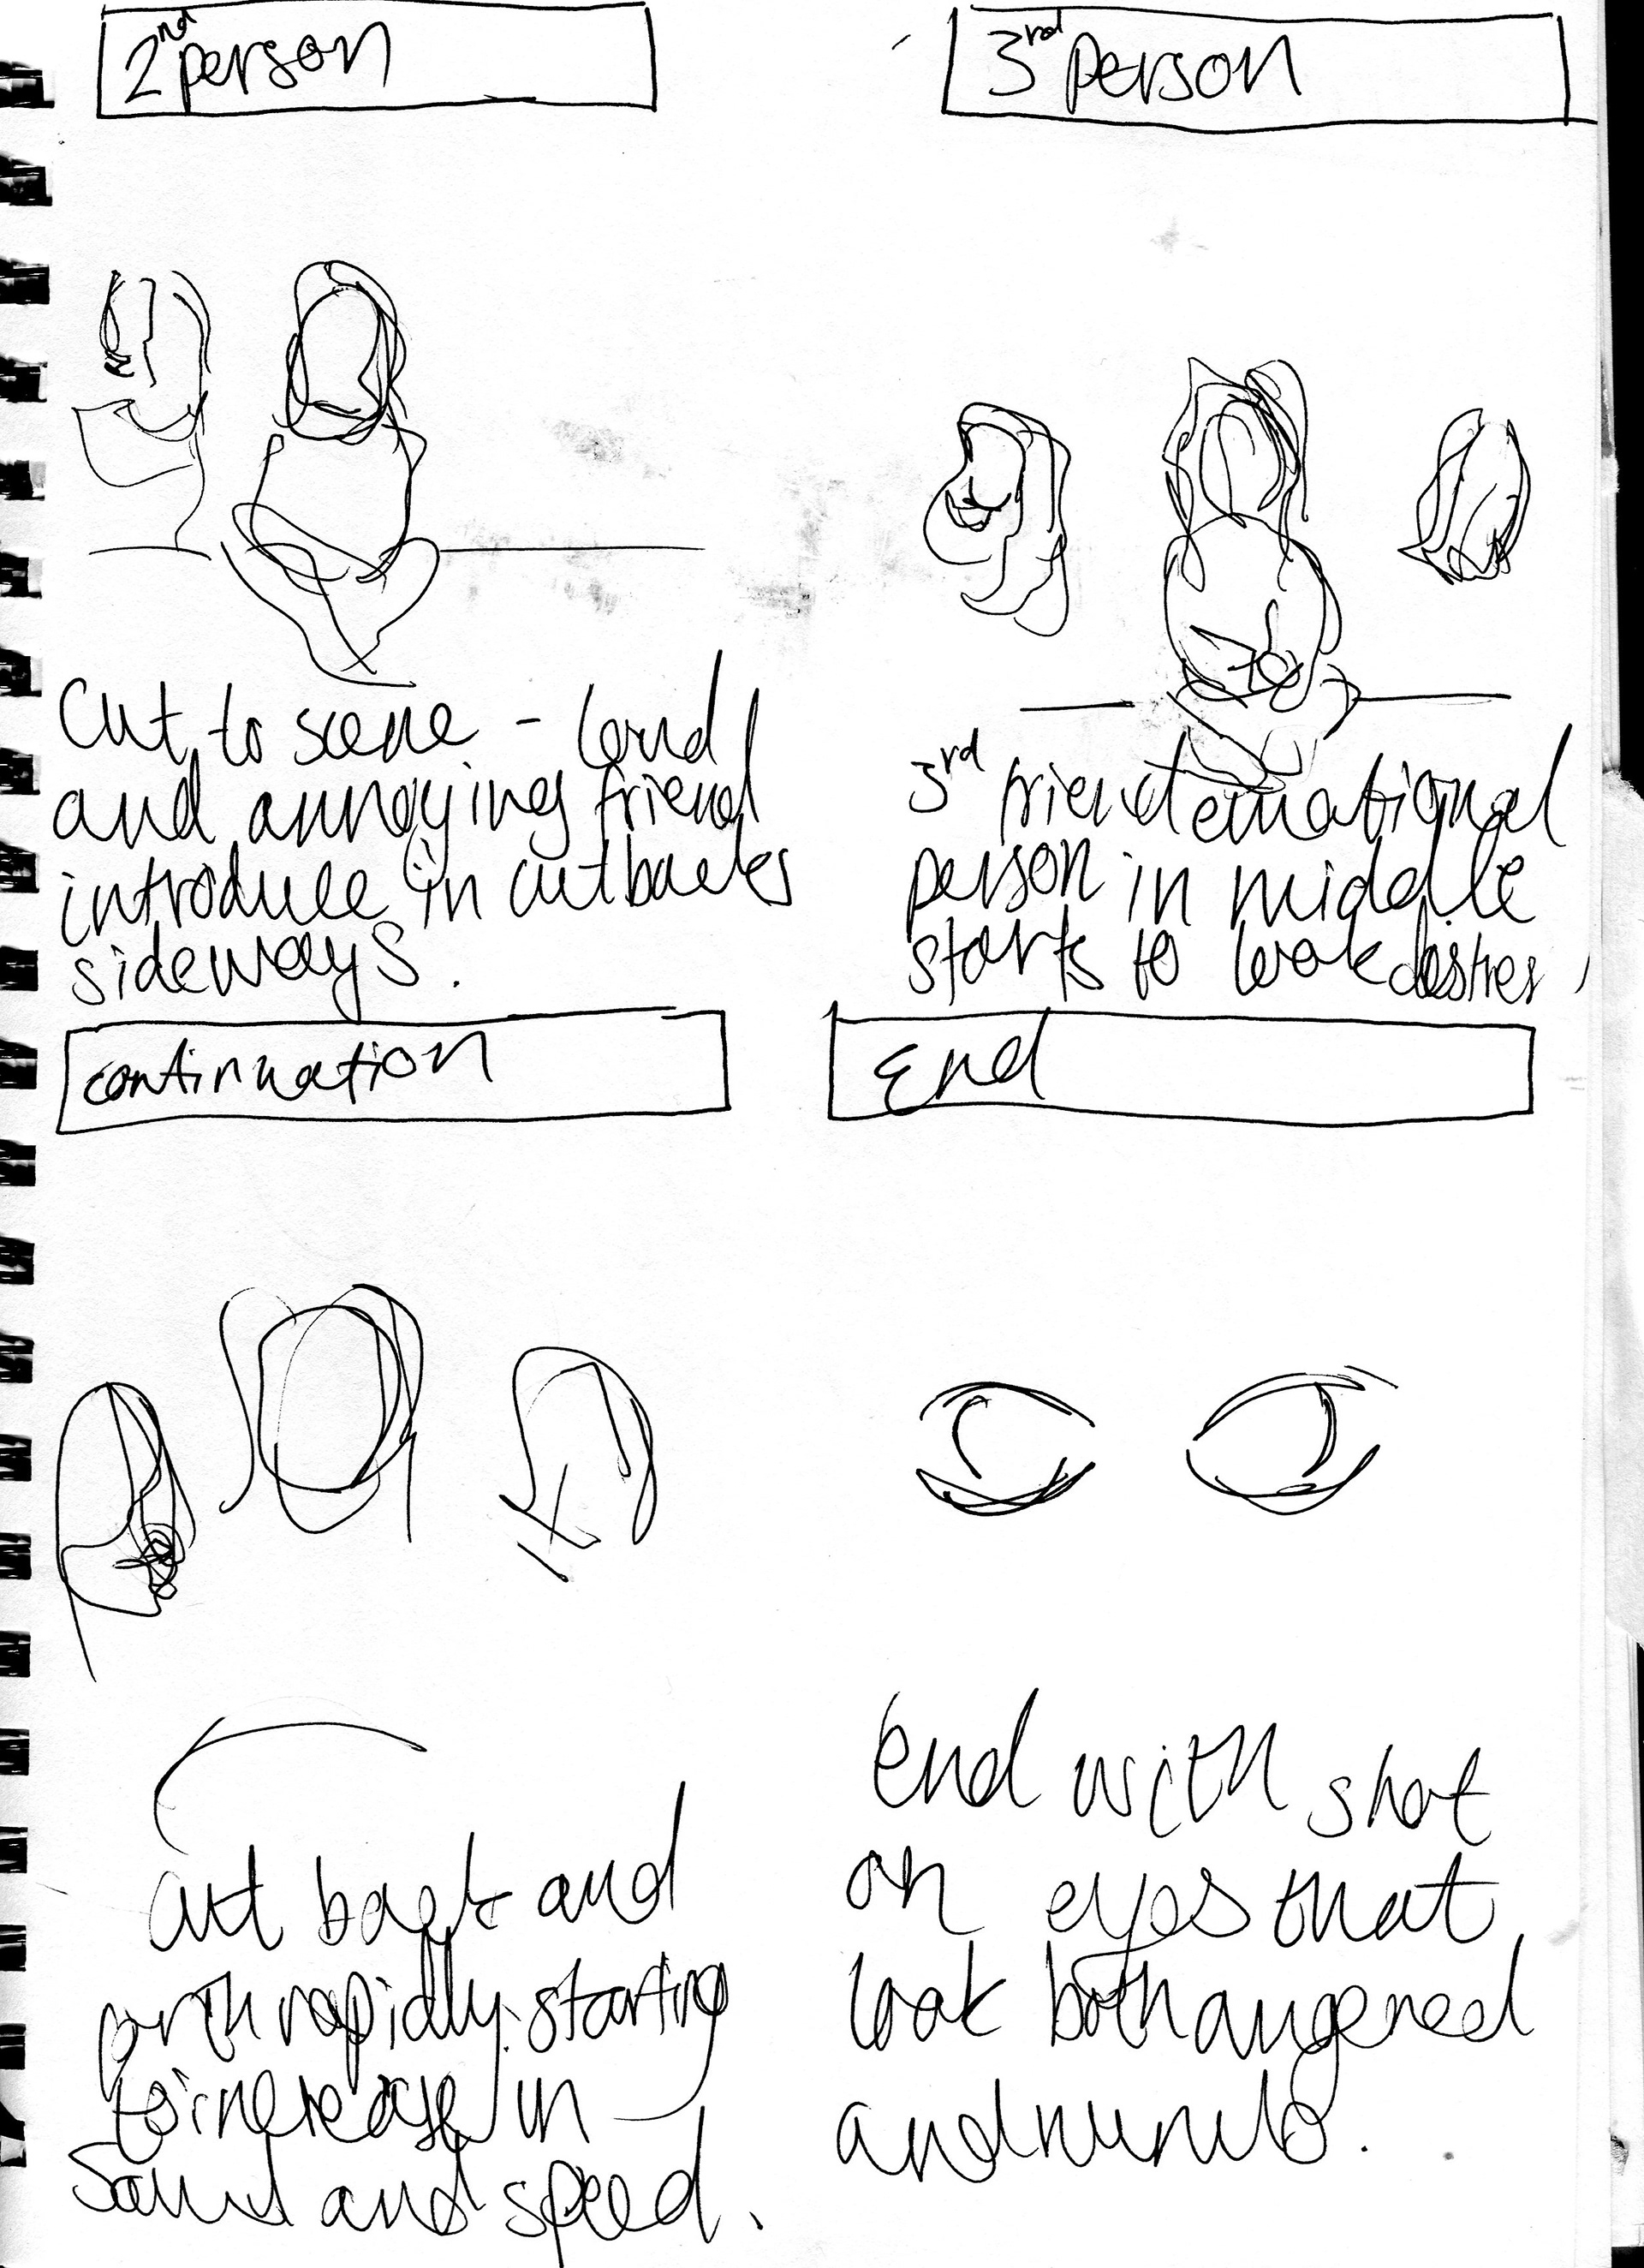 2nd person
3rd person
Cut to scene - loud
and annoying friend
introduce in cutbacks
sideways.
3rd friend emotional
person in middle
starts to look
continuation
End
cut back and
forth rapidly starting
to increase in
sound and speed.
End with shot
on eyes that
look both angered
and numb.